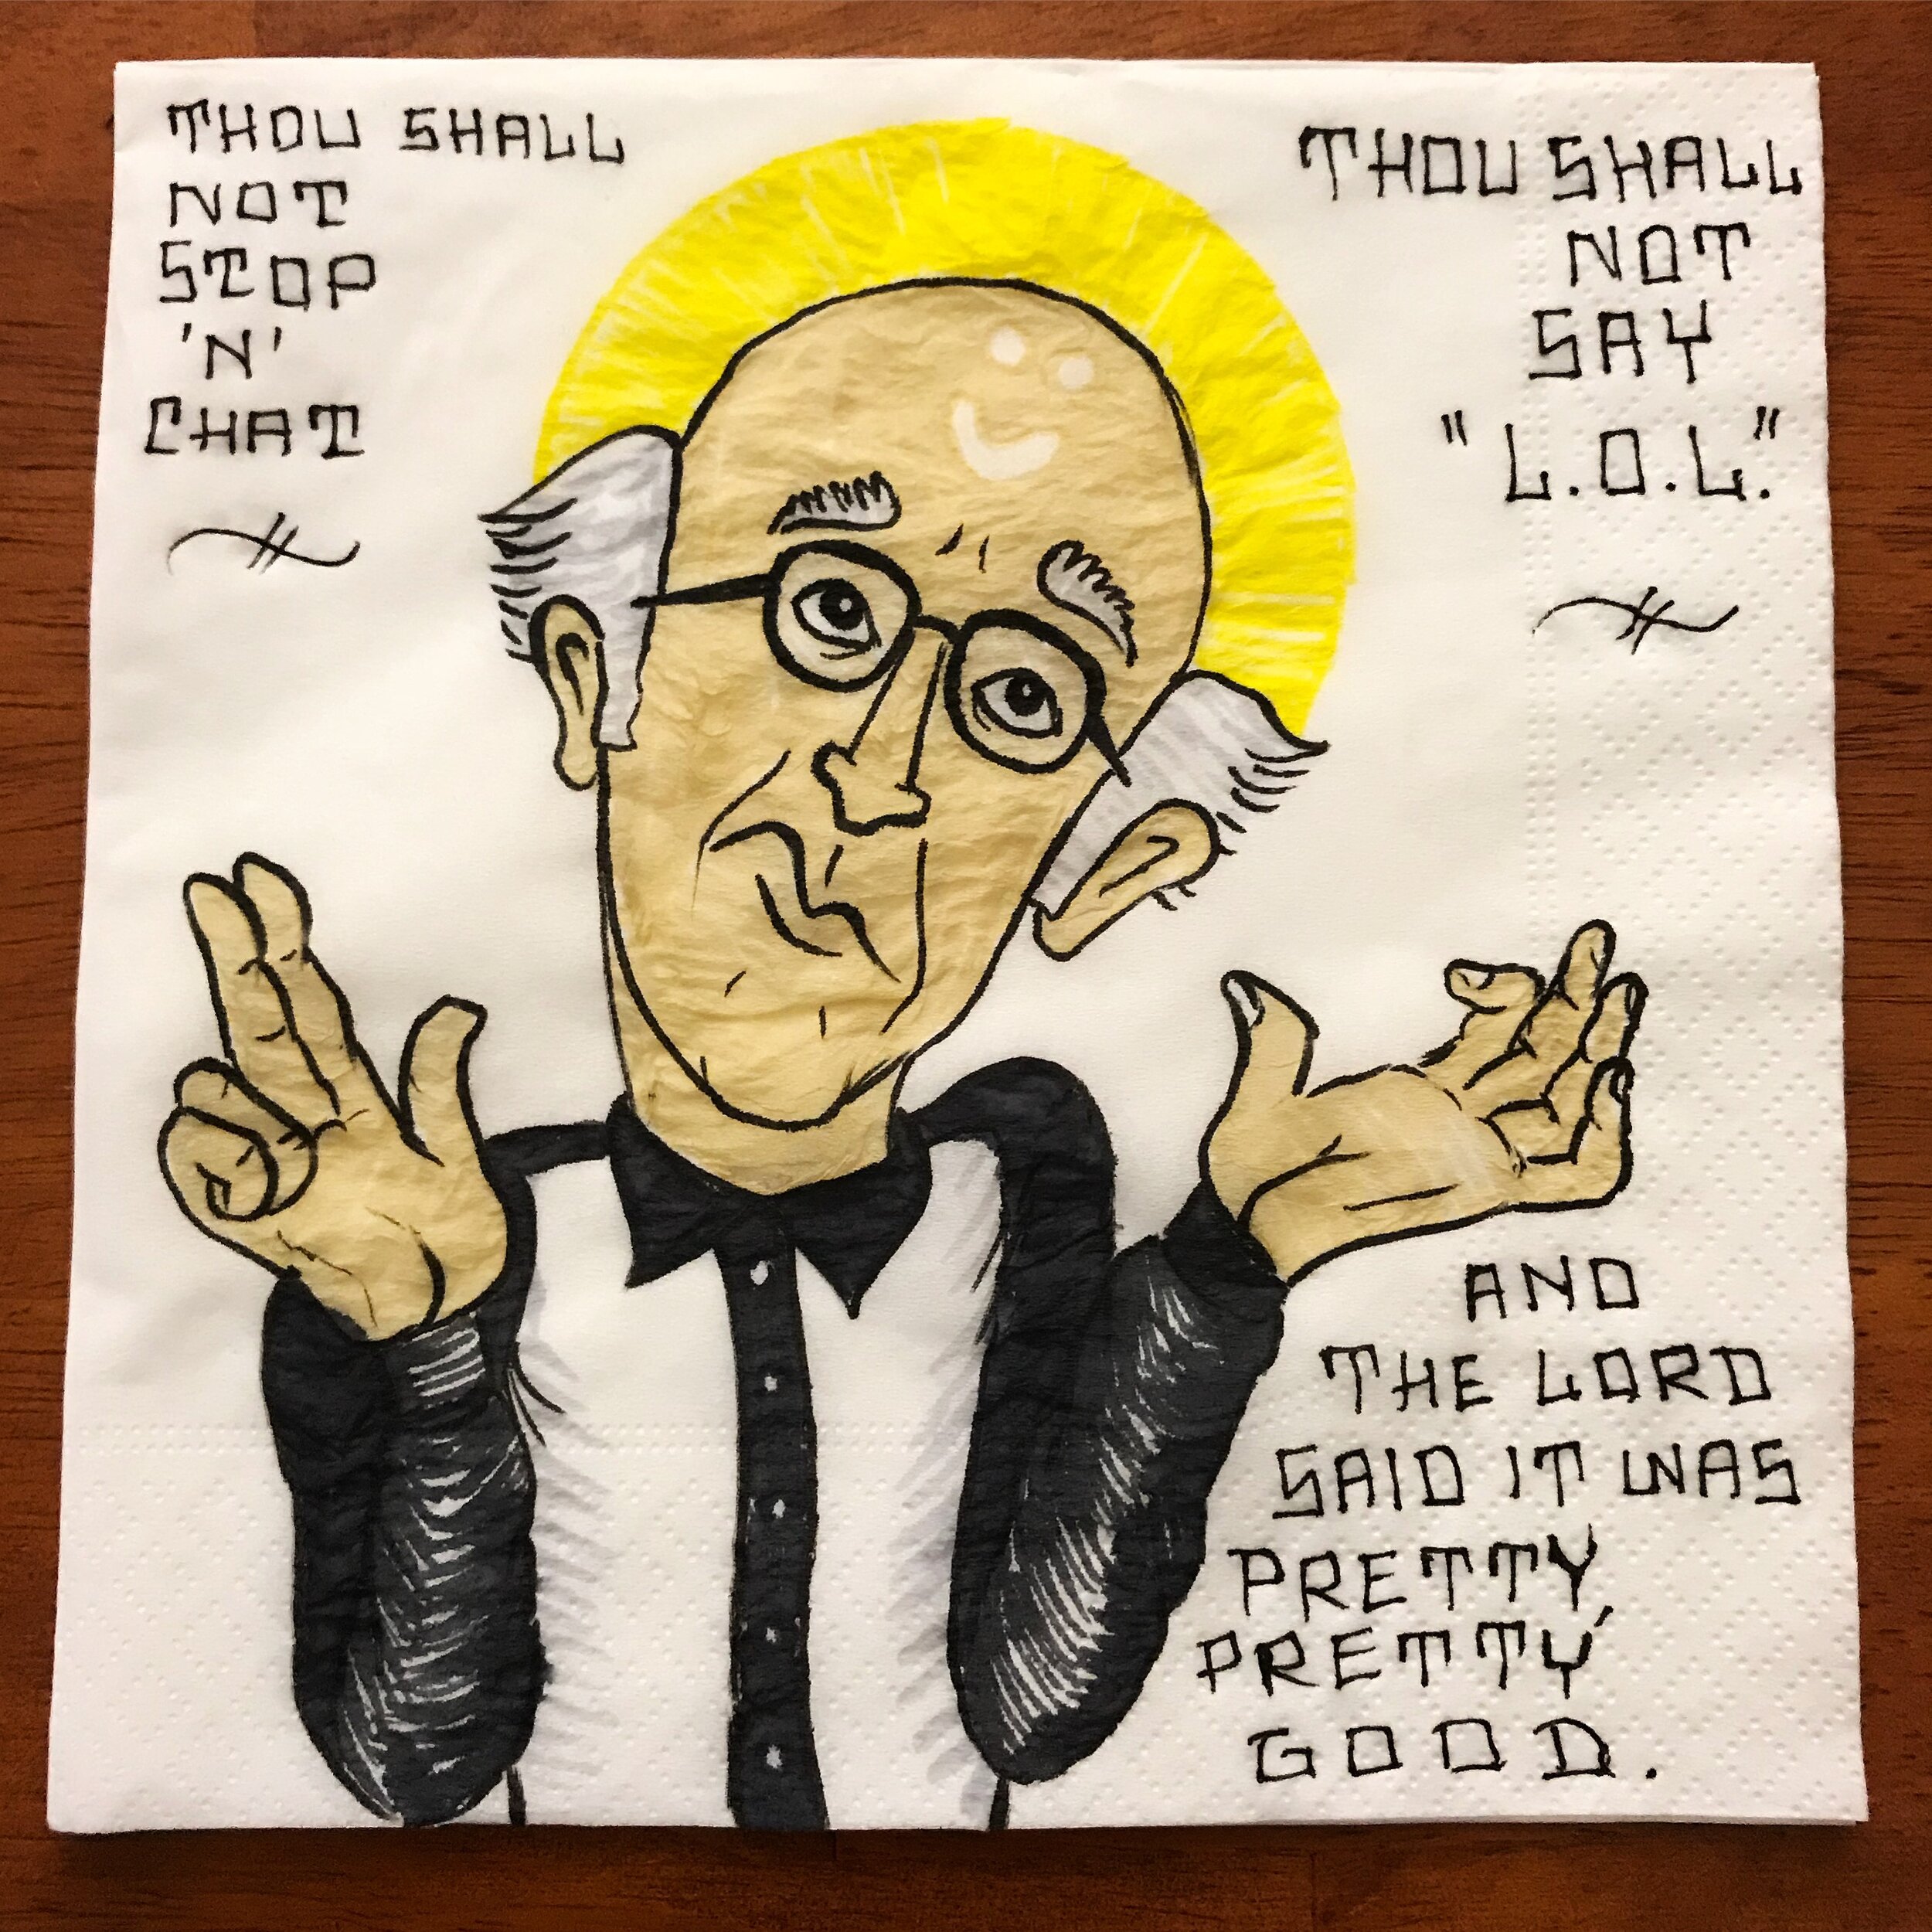 THOU SHALL
NOT
STOP
'N'
CHAT
THOU SHALL
NOT
SAY
"L.O.L."
AND
THE LORD
SAID IT WAS
PRETTY,
PRETTY
GOOD.